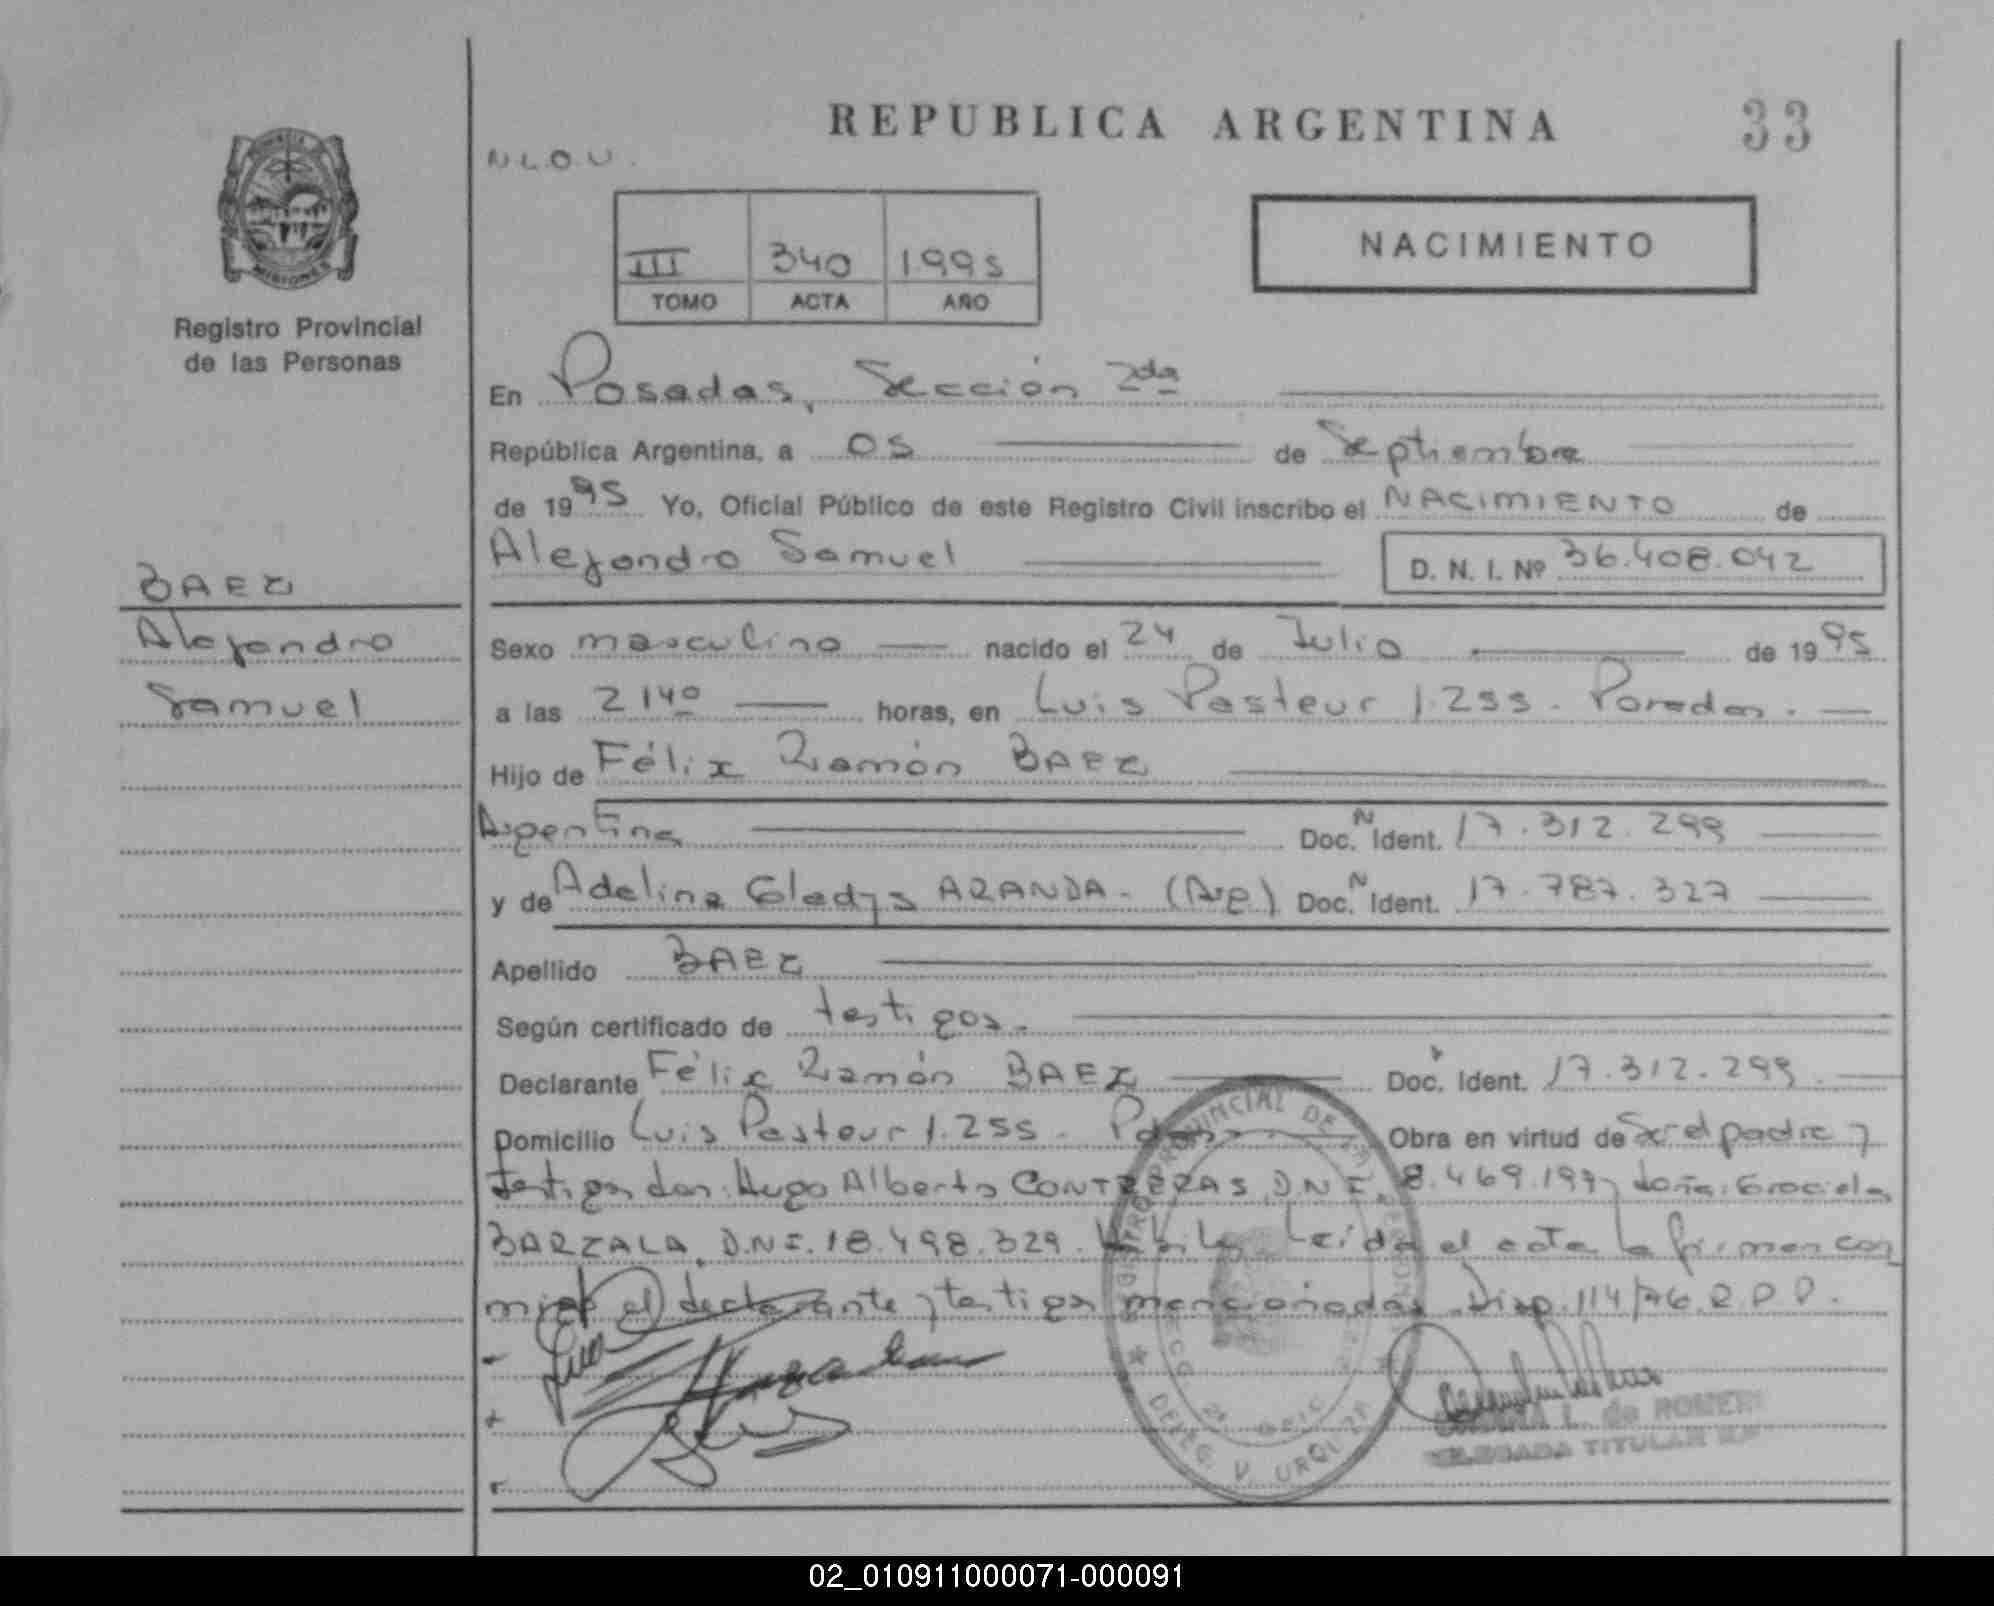 REPUBLICA ARGENTINA
33
N.L.O.U.
MISIONES
Registro Provincial
de las Personas
III 340 1995
TOMO ACTA AÑO
NACIMIENTO
En Posadas, Sección 2da
República Argentina, a 05 de Septiembre
de 1995 Yo, Oficial Público de este Registro Civil inscribo el NACIMIENTO de
Alejandro Samuel D. N. I. Nº 36.408.042
BAEZ
Alejandro
Samuel
Sexo masculino nacido el 24 de Julio de 1995
a las 2140 horas, en Luis Pasteur 1.255. Posadas.
Hijo de Félix Ramón BAEZ
Argentina Doc. N Ident. 17.312.299
y de Adelina Gladys ARANDA - (Arg) Doc. N Ident. 17.787.327
Apellido BAEZ
Según certificado de testigos.
Declarante Félix Ramón BAEZ Doc. Ident. 17.312.299.
Domicilio Luis Pasteur 1.255. Pdas Obra en virtud de Ser el padre y
testigos don: Hugo Alberto CONTRERAS, D.N.I. 8.469.197 y doña: Graciela
BARZALA, D.N.I. 18.498.329. Leída el acta la firman con
migo el declarante y testigos mencionados. Disp. 114/76.R.P.P.
REGISTRO PROVINCIAL DE LAS PERSONAS
DELEG. V. URQUIZA
L. de ROMERO
DELEGADA TITULAR
02_010911000071-000091